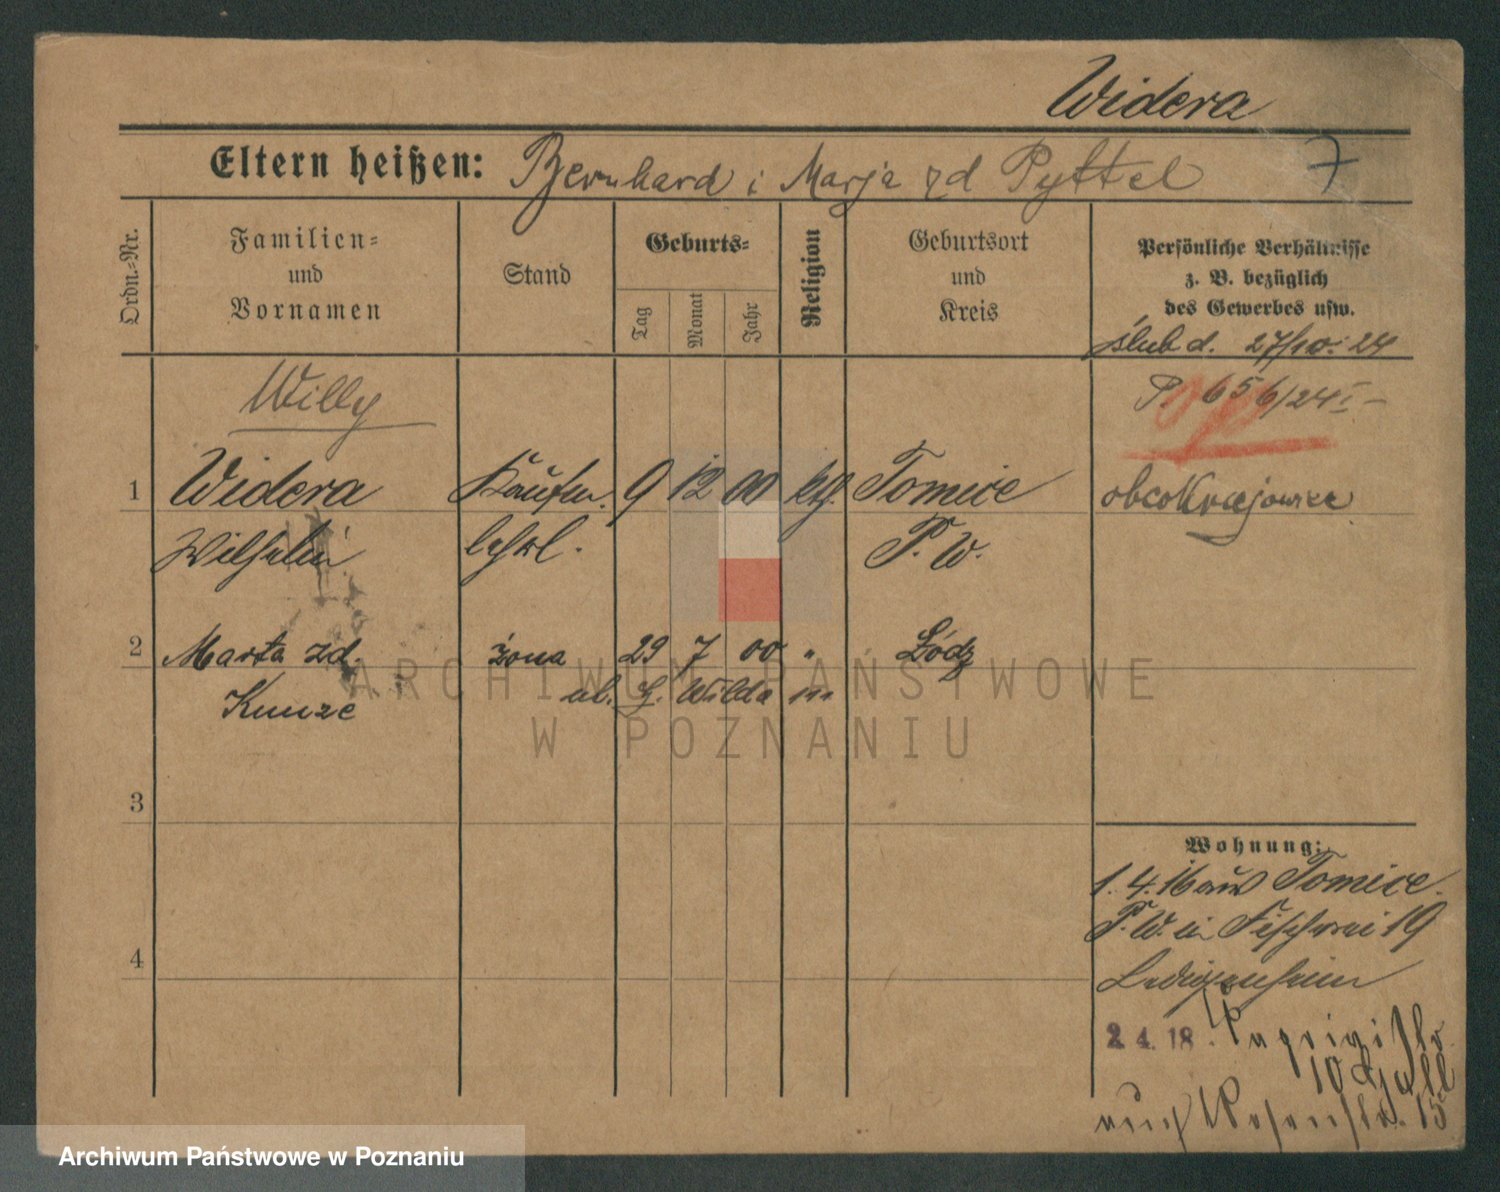 Widera
Eltern heißen: Bernhard i Marja zd Pyttel 7
Ordn.=Nr.
Familien=
und
Vornamen
Stand
Geburts=
Tag
Monat
Jahr
Religion
Geburtsort
und
Kreis
Persönliche Verhältnisse
z. B. bezüglich
des Gewerbes usw.
ślub d. 27/10. 24
Willy
P. 656/24 I -
1 Widera Kaufm. 9 12 00 kth. Tomice obcokrajowiec
Wilhelm lehrl. P. W.
2 Marta zd. żona 29 7 00 " Łódź
Kunze ul. G. Wilda
3
4
Wohnung:
1. 4. 16 aus Tomice.
P. W. in Fischerei 19
Ledigenheim
2. 4. 18.
10
15
ARCHIWUM PAŃSTWOWE
W POZNANIU
Archiwum Państwowe w Poznaniu